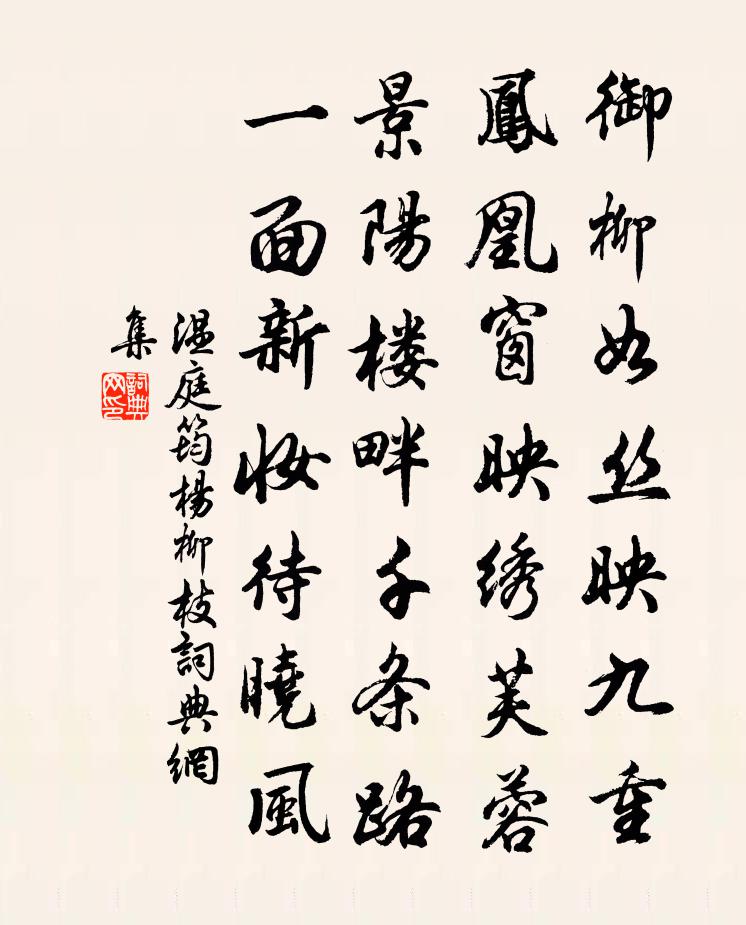 御柳如丝映九重
鳳凰窗映绣芙蓉
景陽楼畔千条路
一面新妆待曉風
温庭筠楊柳枝詞典網
集
詞典网印